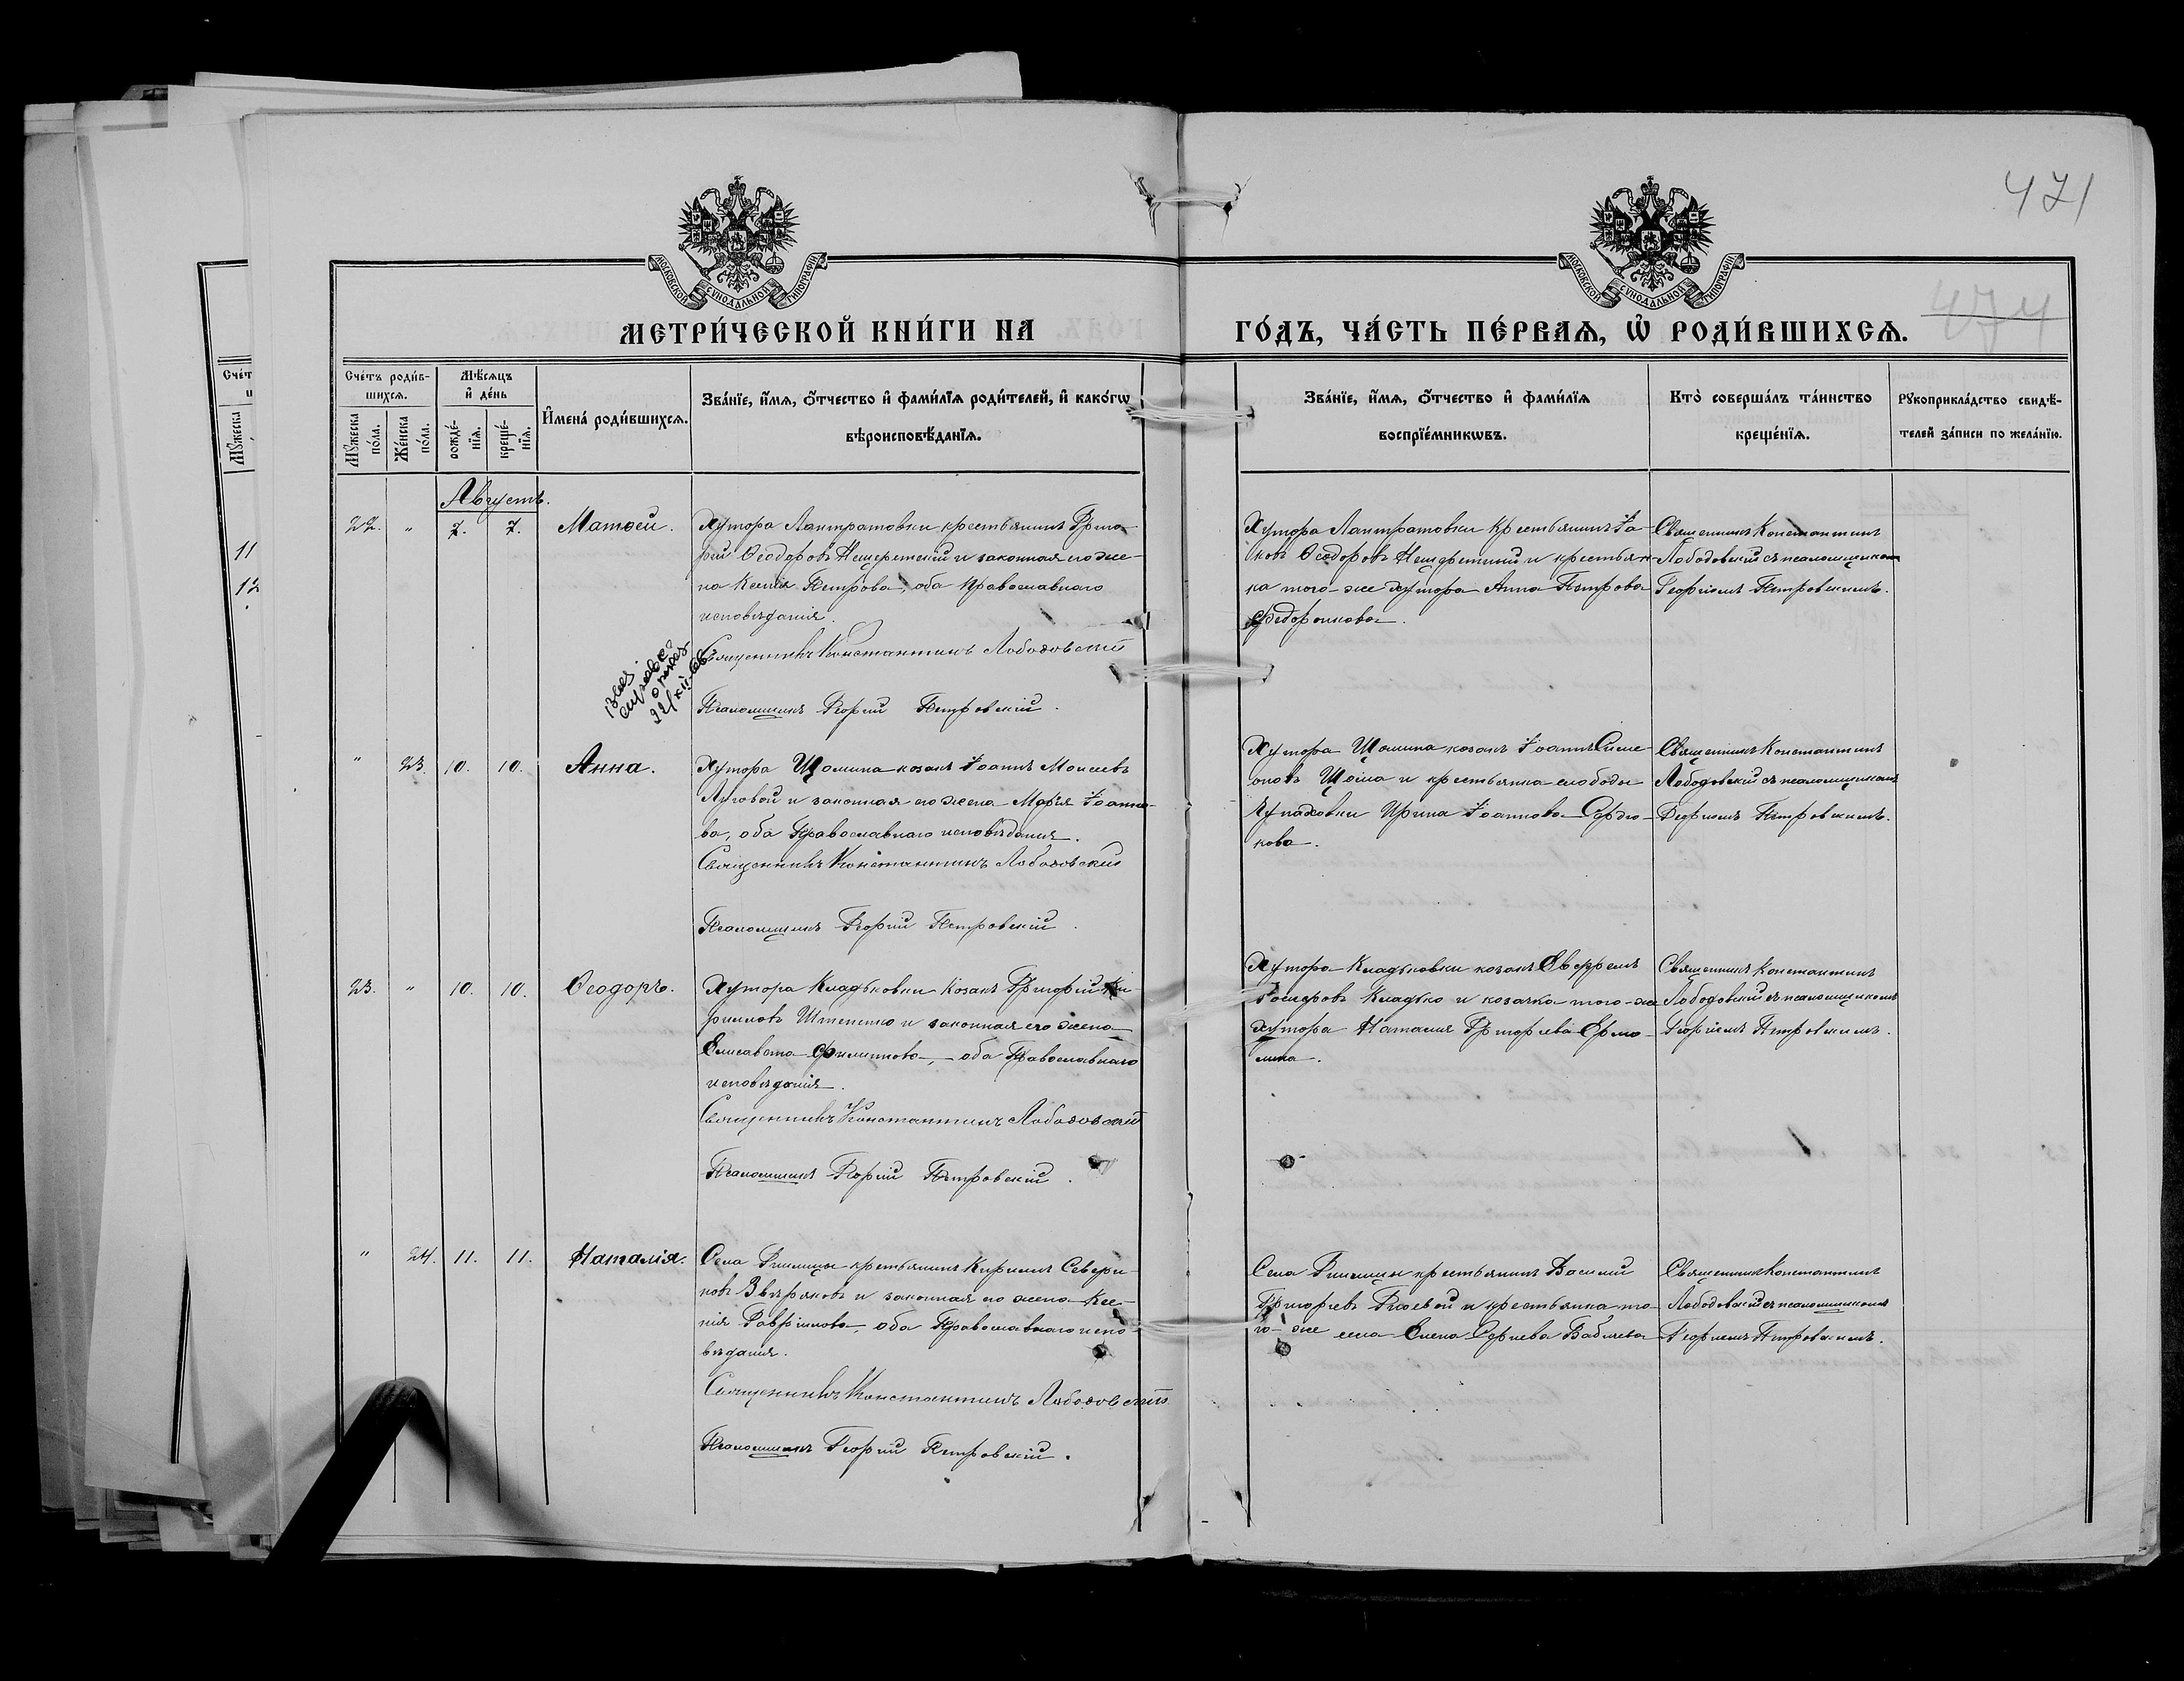 471
474
МОСКОВСКОЙ СѴНОДАЛЬНОЙ ТИПОГРАФІИ
МОСКОВСКОЙ СѴНОДАЛЬНОЙ ТИПОГРАФІИ
МЕТРИ́ЧЕСКОЙ КНИ́ГИ НА
ГО́ДЪ, ЧА́СТЬ ПЕ́РВАѦ, Ѡ҆ РОДИ́ВШИХСѦ.
Сче́тъ роди́в-
шихсѧ.
Мꙋ́жеска
по́ла.
Же́нска
по́ла.
Мѣ́сѧцъ
и҆ де́нь
рожде́-
нїѧ.
креще́-
нїѧ.
И҆мена̀ роди́вшихсѧ.
Зва́нїе, и҆́мѧ, ѻ҆́тчество и҆ фами́лїѧ роди́телей, и҆ како́гѡ
вѣроисповѣ́данїѧ.
Зва́нїе, и҆́мѧ, ѻ҆́тчество и҆ фами́лїѧ
воспрїе́мникѡвъ.
Кто̀ соверша́лъ та́инство
креще́нїѧ.
Рꙋкоприкла́дство свидѣ́-
телей за́писи по жела́нїю.
11
12
Августъ.
22. " 7. 7. Матѳей.
Хутора Лантратовки крестьянинъ Григо-
рий Ѳеодоровъ Нещеретній и законная его же-
на Ксенія Петрова, оба Православнаго
исповѣданія.
Священникъ Константинъ Лободовскій
Псаломщикъ Георгій Петровскій.
Хутора Лантратовки крестьянинъ Іа-
ковъ Ѳеодоровъ Нещеретній и крестьян-
ка того-же хутора Анна Петрова
Федоренкова.
Священникъ Константинъ
Лободовскій съ псаломщикомъ
Георгіемъ Петровскимъ.
22/XII
" 23. 10. 10. Анна.
Хутора Щомина козакъ Іоаннъ Моисеевъ
Луговой и законная его жена Марія Іоанно-
ва, оба Православнаго исповѣданія.
Священникъ Константинъ Лободовскій
Псаломщикъ Георгій Петровскій.
Хутора Щомина козакъ Іоаннъ Симе-
оновъ Щома и крестьянка слободы
Чупаховки Ирина Іоаннова Сердю-
кова.
Священникъ Константинъ
Лободовскій съ псаломщикомъ
Георгіемъ Петровскимъ.
23. " 10. 10. Ѳеодоръ.
Хутора Кладьковки Козакъ Григорій Ки-
рилловъ Штепенко и законная его жена
Елисавета Филиппова, оба Православнаго
исповѣданія.
Священникъ Константинъ Лободовскій
Псаломщикъ Георгій Петровскій.
Хутора Кладьковки козакъ Ефремъ
Кладько и козачка того-же
хутора Наталія Григорьева Ермо-
лина.
Священникъ Константинъ
Лободовскій съ псаломщикомъ
Георгіемъ Петровскимъ.
" 24. 11. 11. Наталія.
Села крестьянинъ Кириллъ Севери-
новъ Звѣряковъ и законная его жена Ксе-
нія Гавриилова, оба Православнаго испо-
вѣданія.
Священникъ Константинъ Лободовскій
Псаломщикъ Георгій Петровскій.
Села крестьянинъ Василій
Григорьевъ и крестьянка то-
го-же села Елена Сергіева Бабичева
Священникъ Константинъ
Лободовскій съ псаломщикомъ
Георгіемъ Петровскимъ.